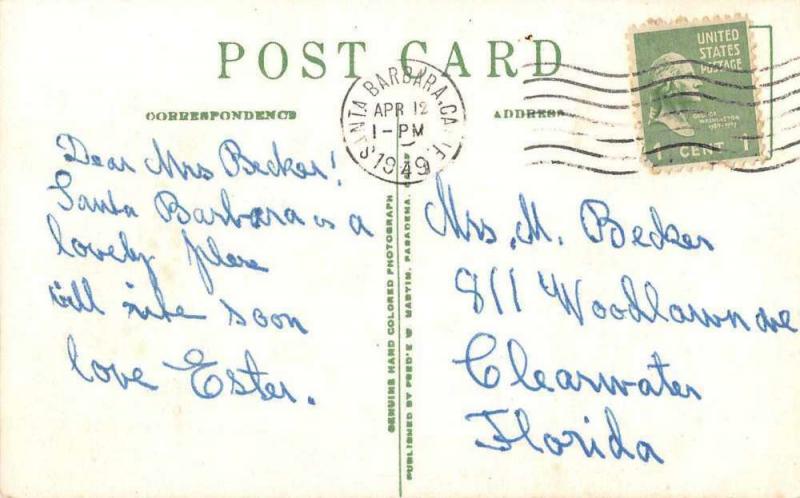 POST CARD
UNITED
STATES
POSTAGE
GEORGE
WASHINGTON
1789-1797
1 CENT 1
SANTA BARBARA, CALIF.
APR 12
1-PM
1949
CORRESPONDENCE
ADDRESS
Dear Mrs Becker!
Santa Barbara is a
lovely plase
will rite soon
love Ester.
GENUINE HAND COLORED PHOTOGRAPH
PUBLISHED BY FRED'K W MARTIN, PASADENA,
Mrs. M. Becker
811 Woodlawn ave
Clearwater
Florida